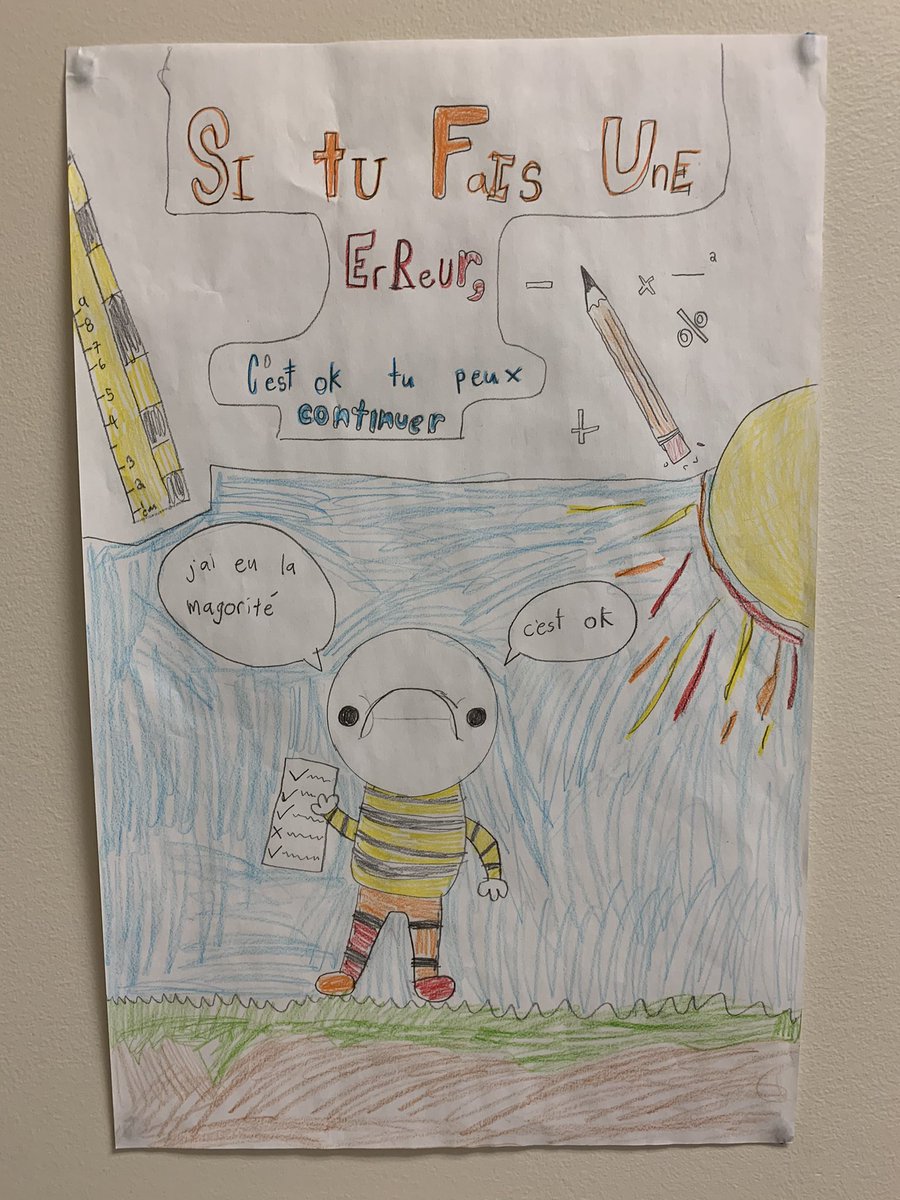 Si tu Fais Une
Erreur,
C'est ok tu peux
continuer
9
8
7
6
5
4
3
2
cm
- x — 2
%
+
j'ai eu la
magorité
c'est ok